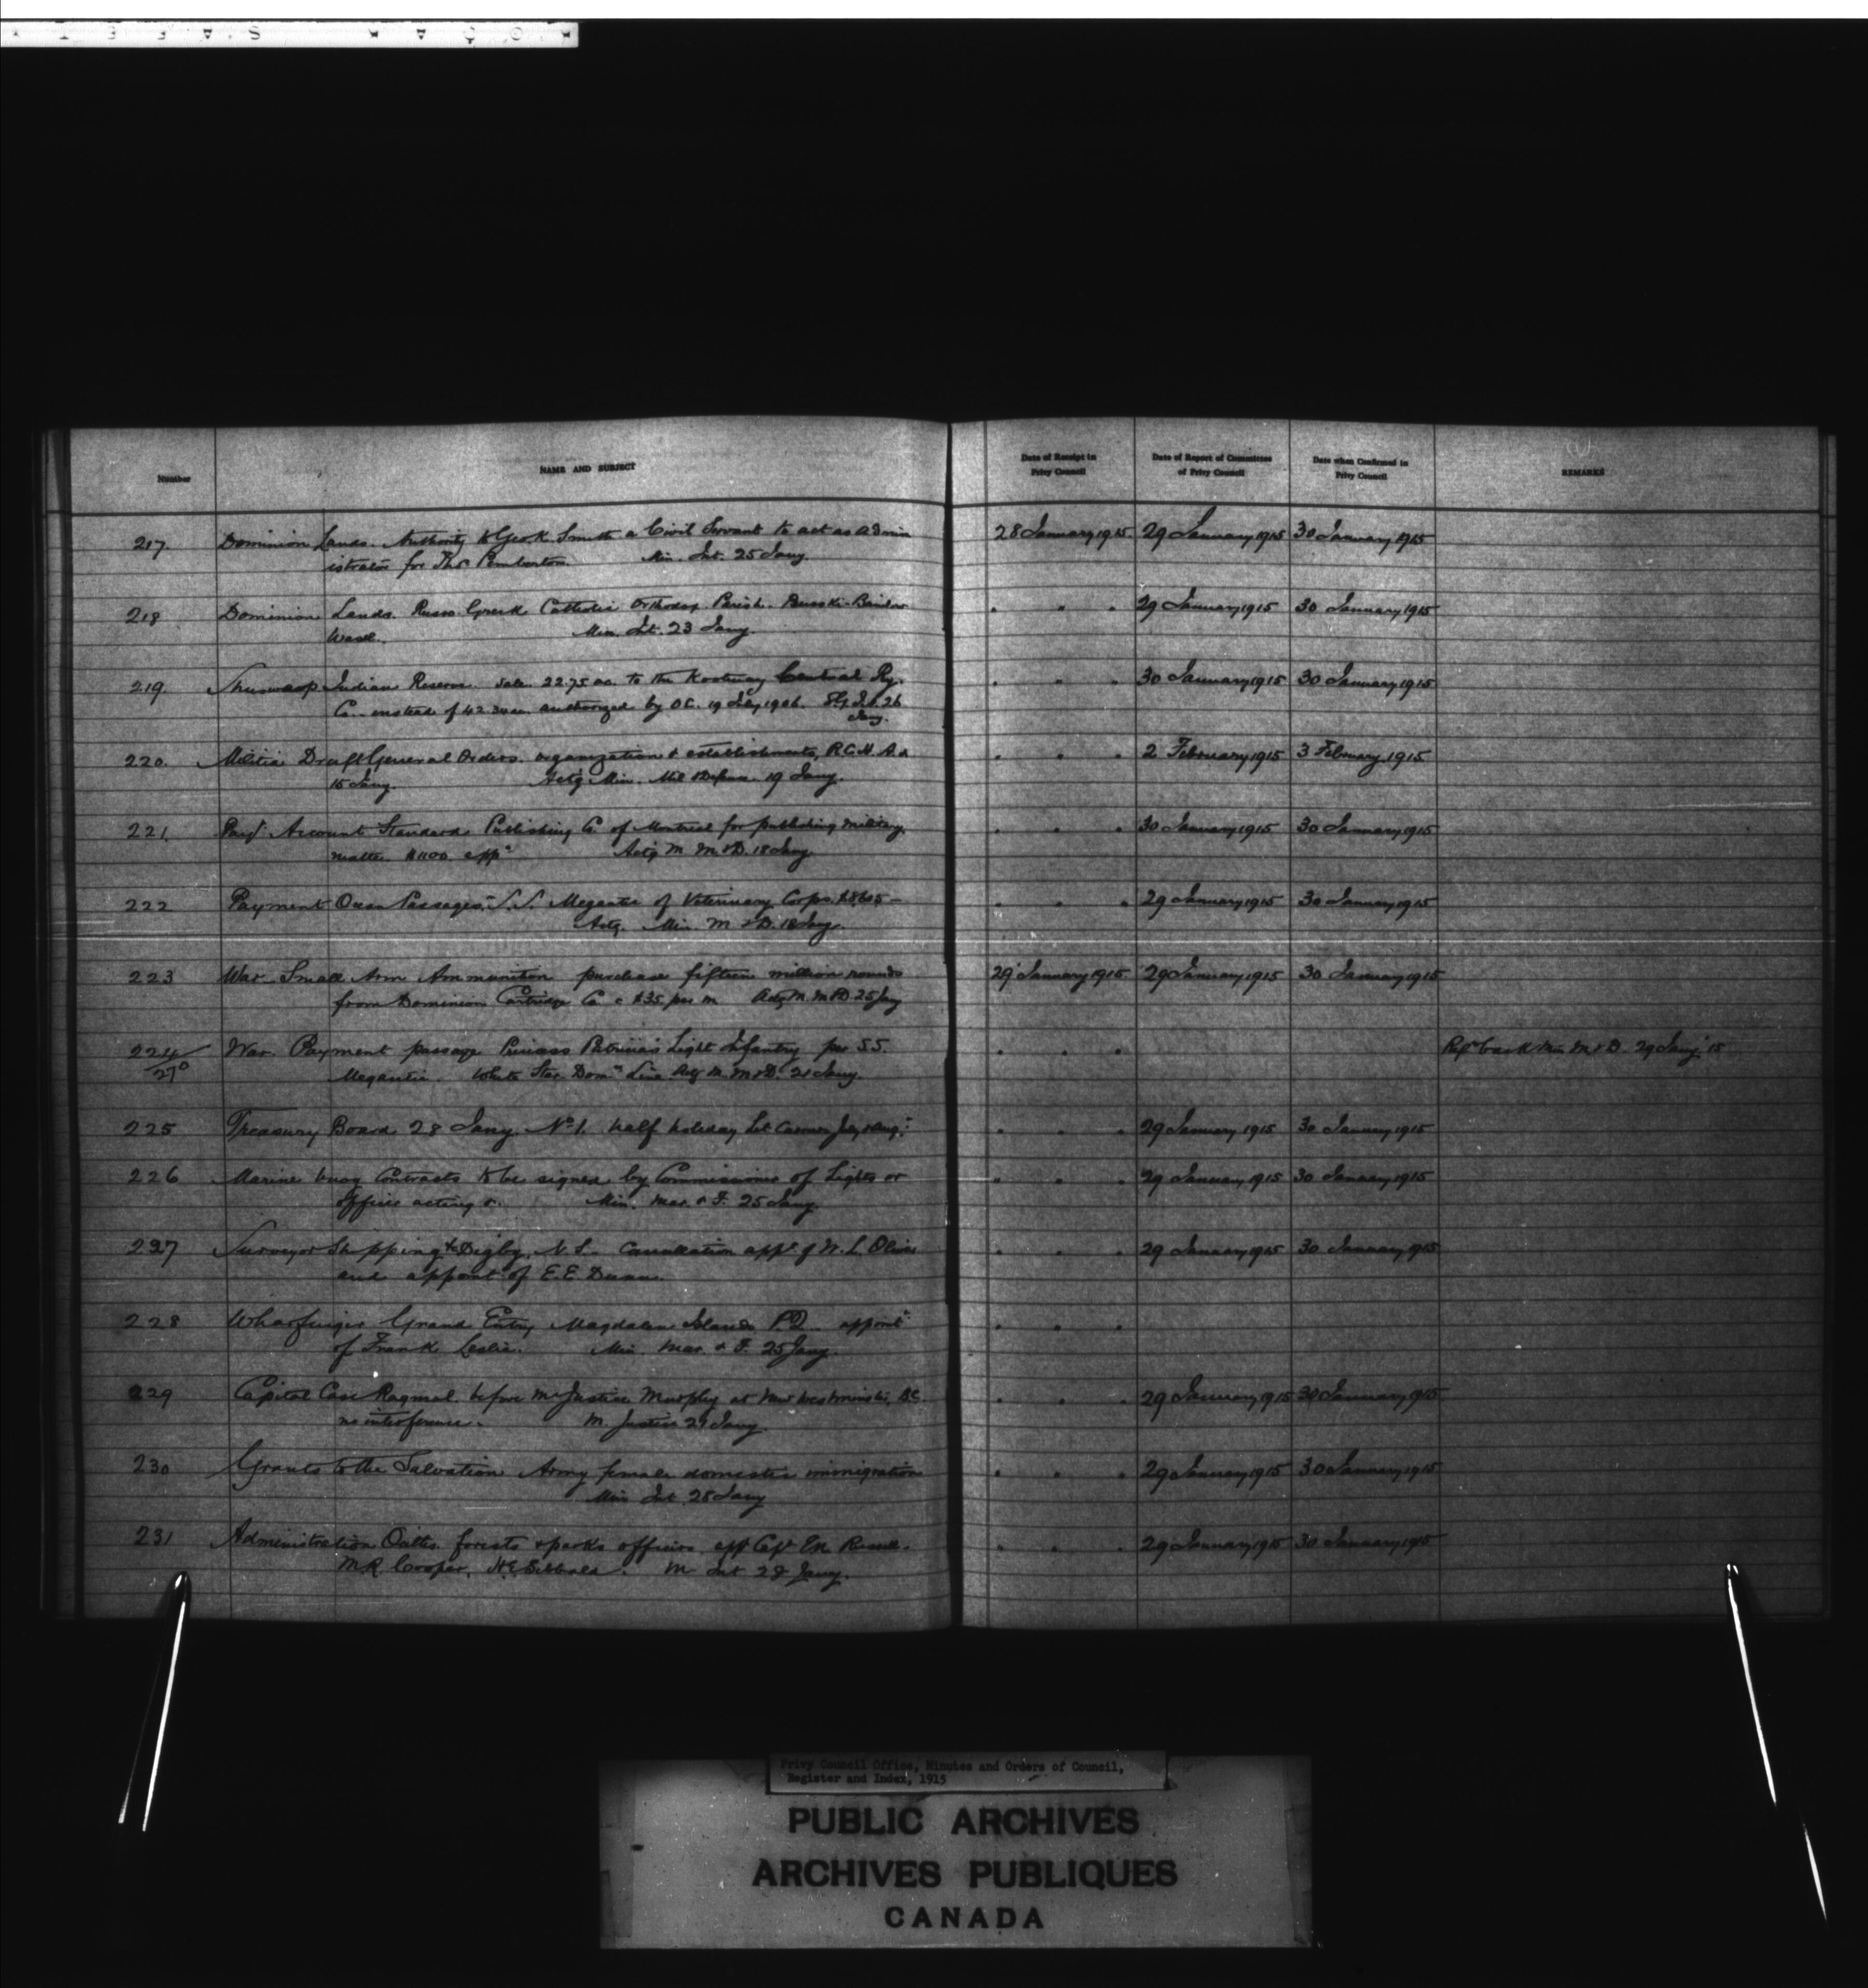 Number NAME AND SUBJECT Date of Receipt in Privy Council Date of Report of Committee of Privy Council Date when Confirmed in Privy Council REMARKS
217. Dominion Lands. Authority to Geo K. Smith a Civil Servant to act as admin 28 January 1915. 29 January 1915 30 January 1915
istrator for Thos Pemberton. Min. Int. 25 Jany.
218 Dominion Lands. Russo Greek Catholic Orthodox Parish. " " " 29 January 1915 30 January 1915
Min. Int. 23 Jany.
219. Shuswap Indian Reserve. Sale 22.75 ac. to the Kootenay Central Ry. " " " 30 January 1915 30 January 1915
Co. instead of 42.34 ac. authorized by O.C. 19 July 1906. 26
Jany.
220. Militia Draft General Orders. organization & establishments, R.C.H.A. & " " " 2 February 1915 3 February 1915
15 Jany. Actg. Min. Mil & Defence 19 Jany.
221. Account Standard Publishing Co of Montreal for publishing military " " " 30 January 1915 30 January 1915
matter \$1100 Actg M. M & D. 18 Jany
222 Payment Ocean Passages, S.S. Megantic of Veterinary Corps. " " " 29 January 1915 30 January 1915
Actg. Min. M & D. 18 Jany.
223 War Small Arm Ammunition purchase fifteen million rounds 29 January 1915. 29 January 1915 30 January 1915
from Dominion Cartridge Co @ \$35 per m Actg M. M & D. 25 Jany
224/270 War. Payment passage Princess Patricia's Light Infantry per S.S. " " " back Min M & D. 29 Jany 15
Megantic. White Star Domn Line. Actg M. M & D. 21 Jany.
225 Treasury Board 28 Jany. No 1. half holiday " " " 29 January 1915 30 January 1915
226 Marine buoy Contracts to be signed by Commissioner of Lights or " " " 29 January 1915 30 January 1915
Officer acting Min. Mar. & F. 25 Jany.
227 Surveyor Shipping Digby, N.S. Cancellation appt of W. L. Oliver " " " 29 January 1915 30 January 1915
and appoint of E.E. Dunn.
228 Wharfinger Grand Entry Magdalen Islands P.Q. appoint " " "
of Frank Leslie. Min. Mar. & F. 25 Jany.
229 Capital Case Ragmal before Mr Justice Murphy at New Westminster, B.C. " " " 29 January 1915 30 January 1915
no interference. M. Justice 27 Jany.
230 Grants to the Salvation Army female domestic immigration " " " 29 January 1915 30 January 1915
Min Int. 28 Jany
231 Administration Oaths. forests & parks officers Russell. " " " 29 January 1915 30 January 1915
M.R. Cooper, M Int 28 Jany.
Privy Council Office, Minutes and Orders of Council,
Register and Index, 1915
PUBLIC ARCHIVES
ARCHIVES PUBLIQUES
CANADA